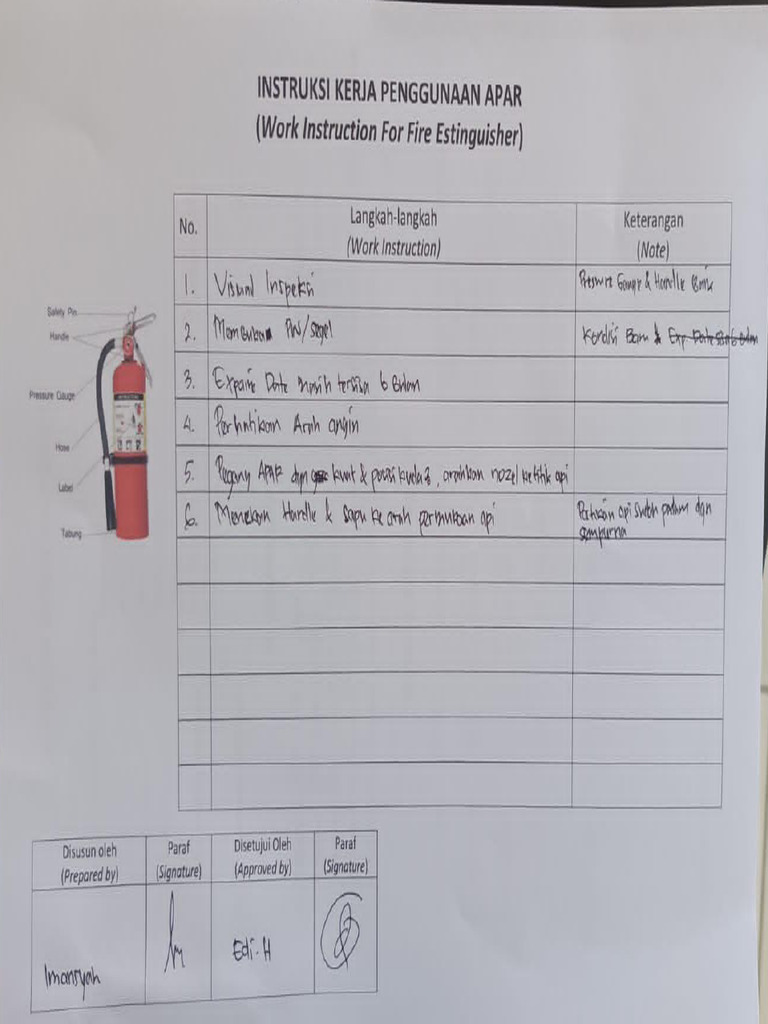 INSTRUKSI KERJA PENGGUNAAN APAR
(Work Instruction For Fire Estinguisher)
No.
Langkah-langkah
(Work Instruction)
Keterangan
(Note)
1. Visual Inspeksi
Pressure Gauge & Handle Baik
2. Membuka Pin/segel
Kondisi Baru & Exp Date
3. Expaire Date masih tersisa 6 Bulan
4. Perhatikan Arah angin
5. Pegang APAR dgn kuat & posisi kuda2, arahkan nozel ke titik api
6. Menekan Handle & sapu ke arah permukaan api
Pastikan api sudah padam dgn
sempurna
Safety Pin
Handle
Pressure Gauge
Hose
Label
Tabung
Disusun oleh
(Prepared by)
Paraf
(Signature)
Disetujui Oleh
(Approved by)
Paraf
(Signature)
Imansyah
Edi. H